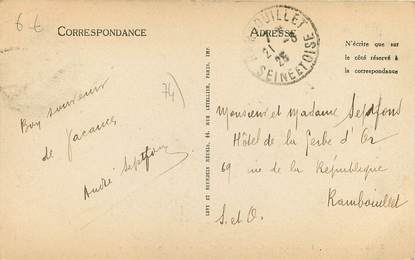 6-6
CORRESPONDANCE
ADRESSE
N'écrire que sur
le côté réservé à
la correspondance
RAMBOUILLET
25
SEINE ET OISE
74)
Bon souvenir
de Vacances
André Septfons
LEVY ET NEURDEIN RÉUNIS, 44, RUE LETELLIER, PARIS. IMP.
Monsieur et Madame Septfons
Hôtel de la Gerbe d'Or
69 rue de la République
Rambouillet
S. et O.